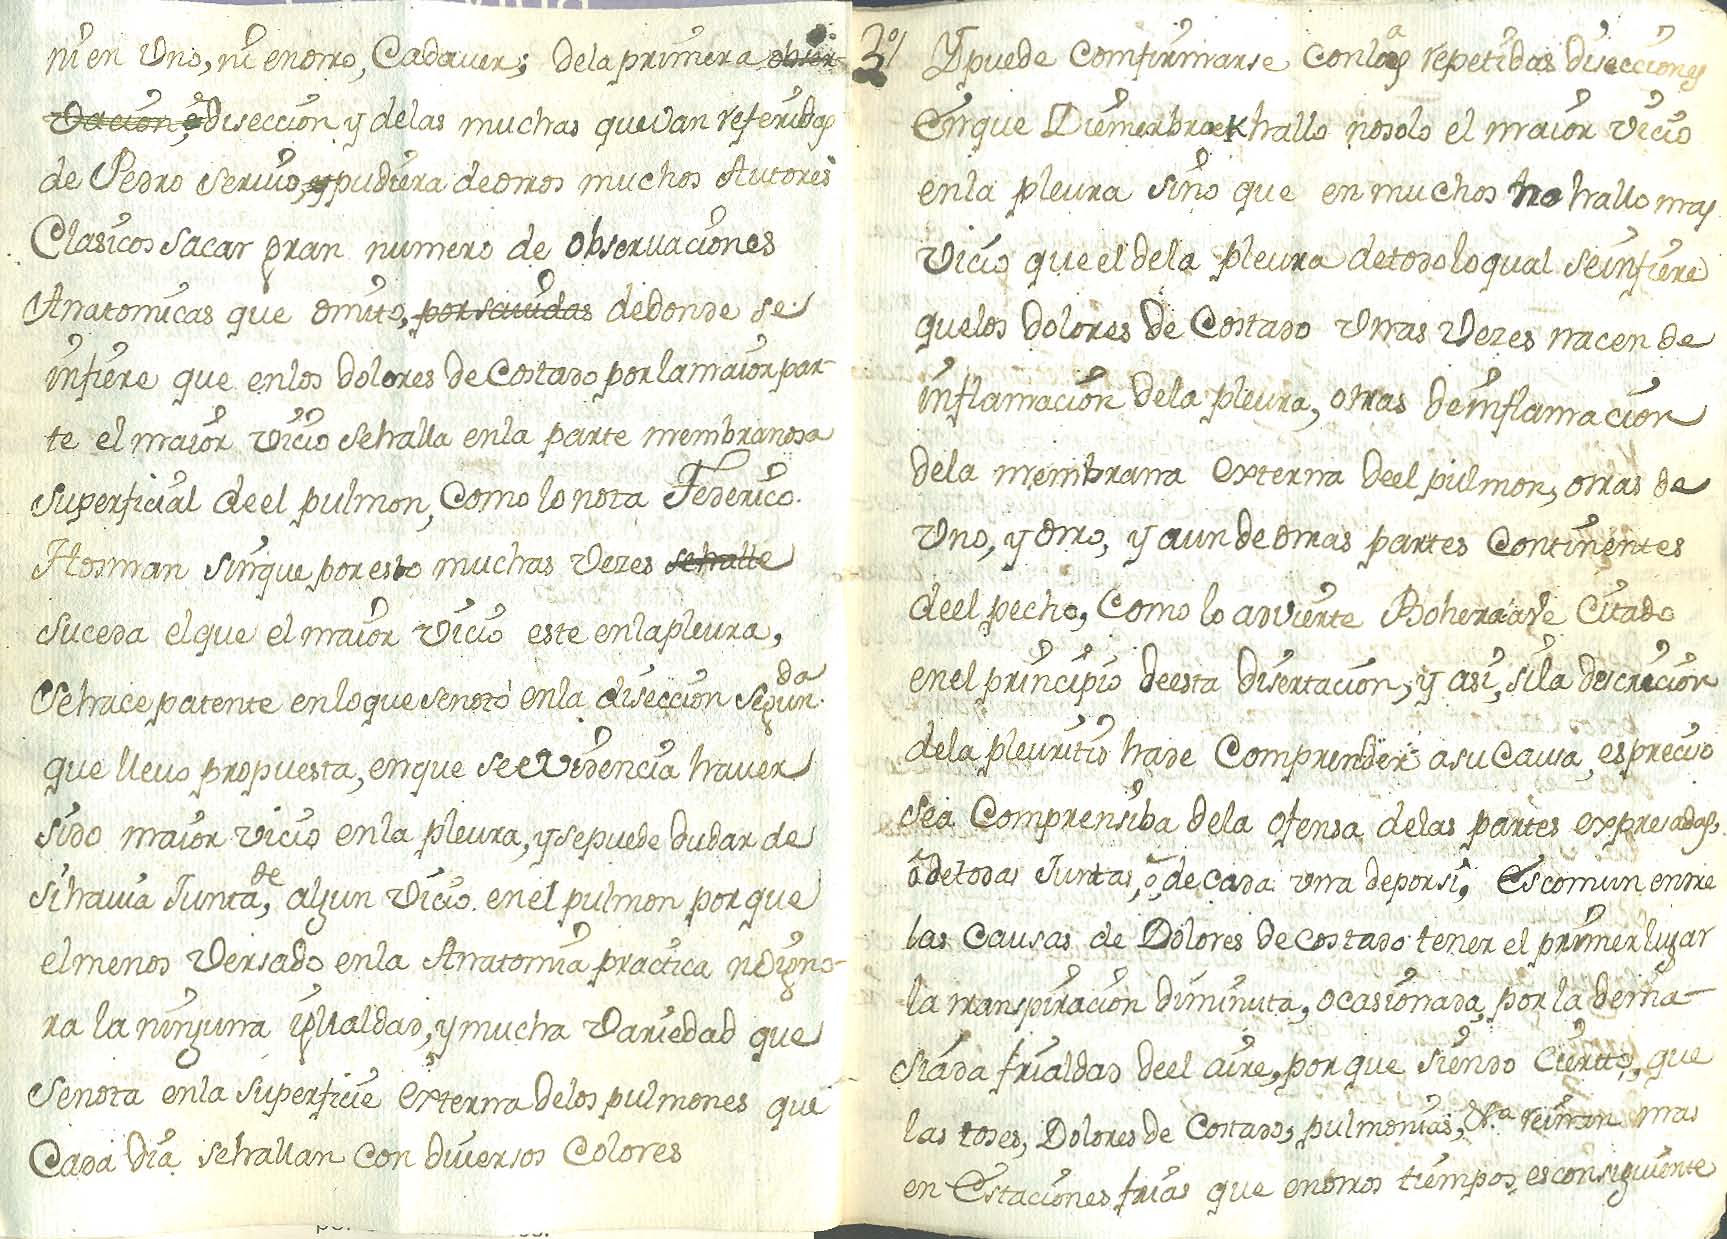 ni en Uno, ni en otro, Cadaver; dela primera obser-
vacion, ò diseccion y delas muchas que van referidas
de Pedro Servio, y pudiera de otros muchos Autores
Clasicos sacar gran numero de observaciones
Anatomicas que omito, por savidas de donde se
infiere que en los dolores de Costado por la maior par-
te el maior vicio se halla en la parte membranosa
superficial de el pulmon, Como lo nota Federico
Hosman sin que por esto muchas vezes se halle
suceda el que el maior vicio este en la pleura,
Se hace patente en lo que se notò en la diseccion Segun.da
que llevo propuesta, en que se evidencia haver
sido maior vicio en la pleura, y se puede dudar de
si havia Junta,de algun vicio en el pulmon por que
el menos versado en la Anatomia practica no igno-
ra la ninguna igualdad, y mucha variedad que
se nota en la superficie externa de los pulmones que
Cada dia se hallan con diversos Colores
2º/ Y puede comfirmarse con las repetidas disecciones
En que Diemerbroek hallo no solo el maior vicio
en la pleura sino que en muchos no hallo mas
vicio que el de la pleura de todo lo qual se infiere
que los dolores de Costado unas vezes nacen de
inflamacion de la pleura, otras de inflamacion
de la membrana externa de el pulmon, otras de
uno, y otro, y aun de otras partes Continentes
de el pecho, Como lo advierte Boheraave Citado
en el principio de esta disertacion, y asi, si la descricion
de la pleuritis ha de Comprender a su Causa, es preciso
sea Comprensiba de la ofensa de las partes expresadas
ò de todas Juntas, ò de cada una de por si, Es comun entre
las Causas de Dolores de costado tener el primer lugar
la transpiracion diminuta, ocasionada, por la dema-
siada frialdad de el aire, por que siendo Ciertto, que
las toses, Dolores de Costado, pulmonias, &.a reinan mas
en Estaciones frias que en otros tiempos, es consiguiente